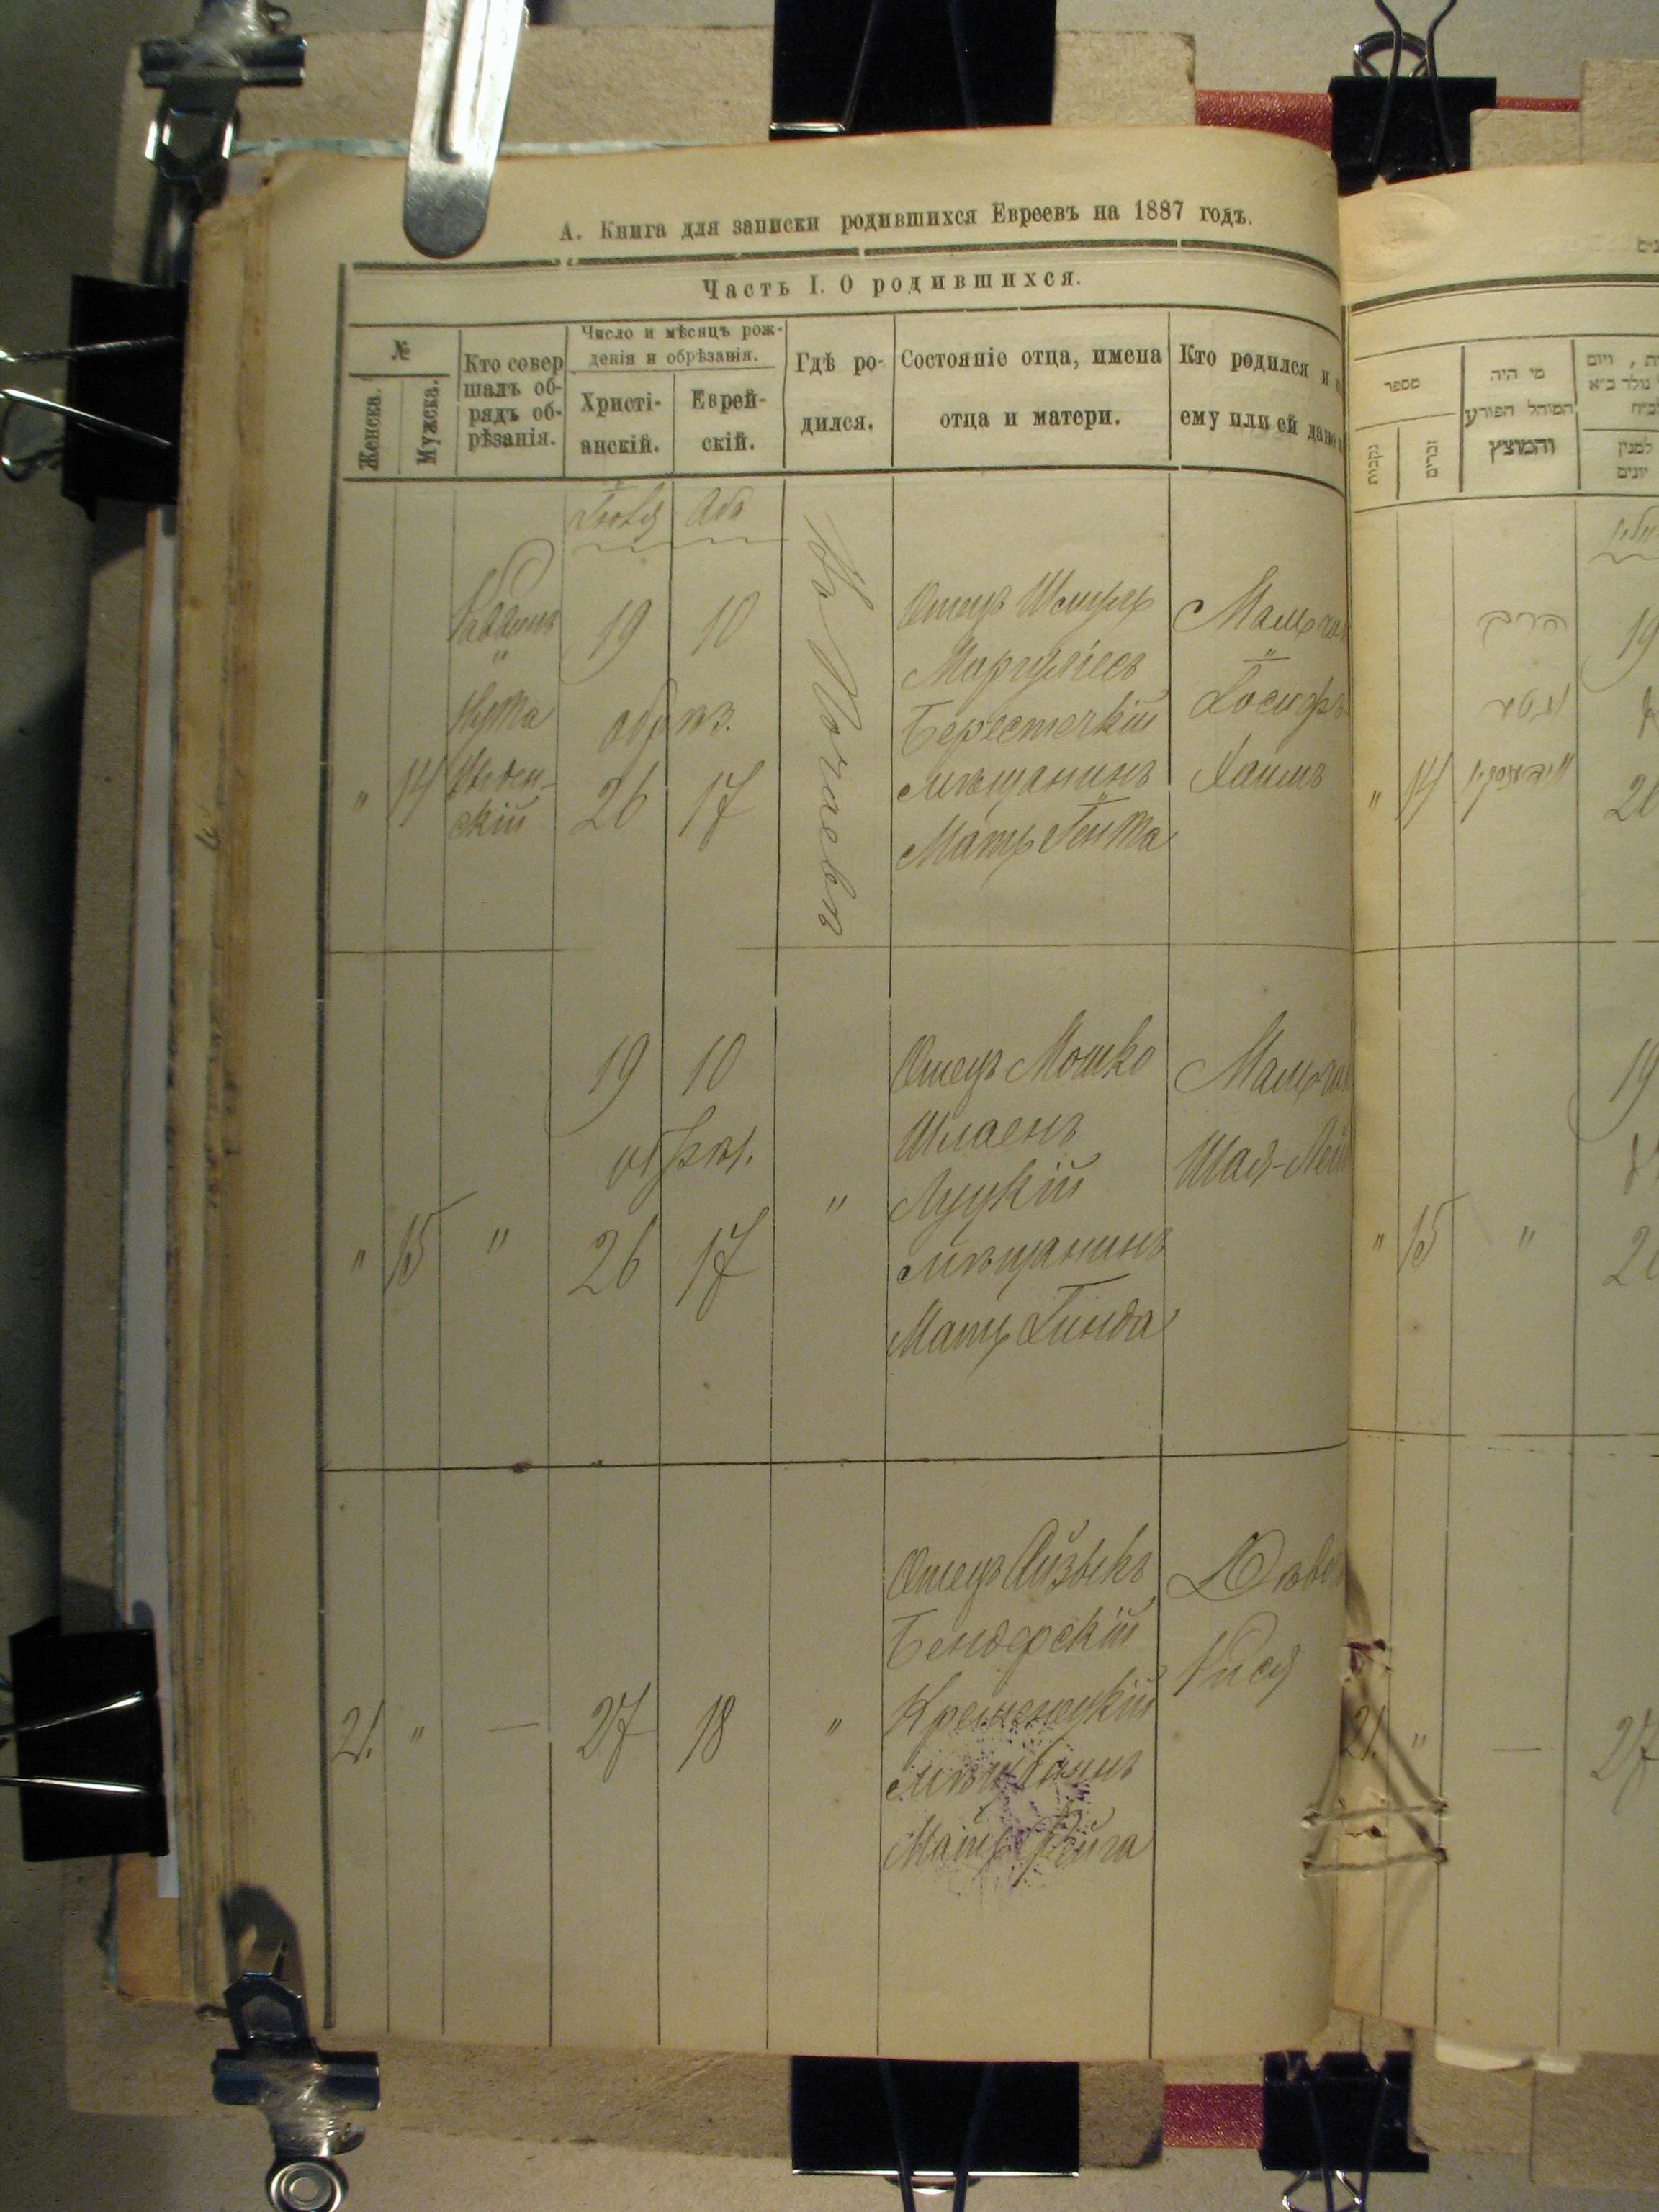 А. Книга для записки родившихся Евреевъ на 1887 годъ.
Часть I. О родившихся.
№
Женска.
Мужска.
Кто совер
шалъ об-
рядъ об-
рѣзанія.
Число и мѣсяцъ рож-
денія и обрѣзанія.
Христі-
анскій.
Еврей-
скій.
Гдѣ ро-
дился.
Состояніе отца, имена
отца и матери.
Кто родился и
ему или ей дано
Іюля Абъ
" 14
Раввинъ
"
Нута
скій
19 10
обрѣз.
26 17
Въ Почаевѣ
Отецъ Шмуль
Маргулісъ
Берестечкій
мѣщанинъ
Мать Гитта
Іосифъ
Хаимъ
" 15 "
19 10
обрѣз.
26 17
"
Отецъ Мошко
Шлаенъ
Луцкій
мѣщанинъ
Мать Гинда
Шая-
21. " —
27 18
"
Отецъ Айзыкъ
Бендерскій
Кременецкій
мѣщанинъ
Мать Фейга
Рися
מספר
נקבות
זכרים
מי היה
המוהל הפורע
והמוצץ
ויום
למנין
יונים
הרב
" 14
19
" 15 "
19
21. " —
27